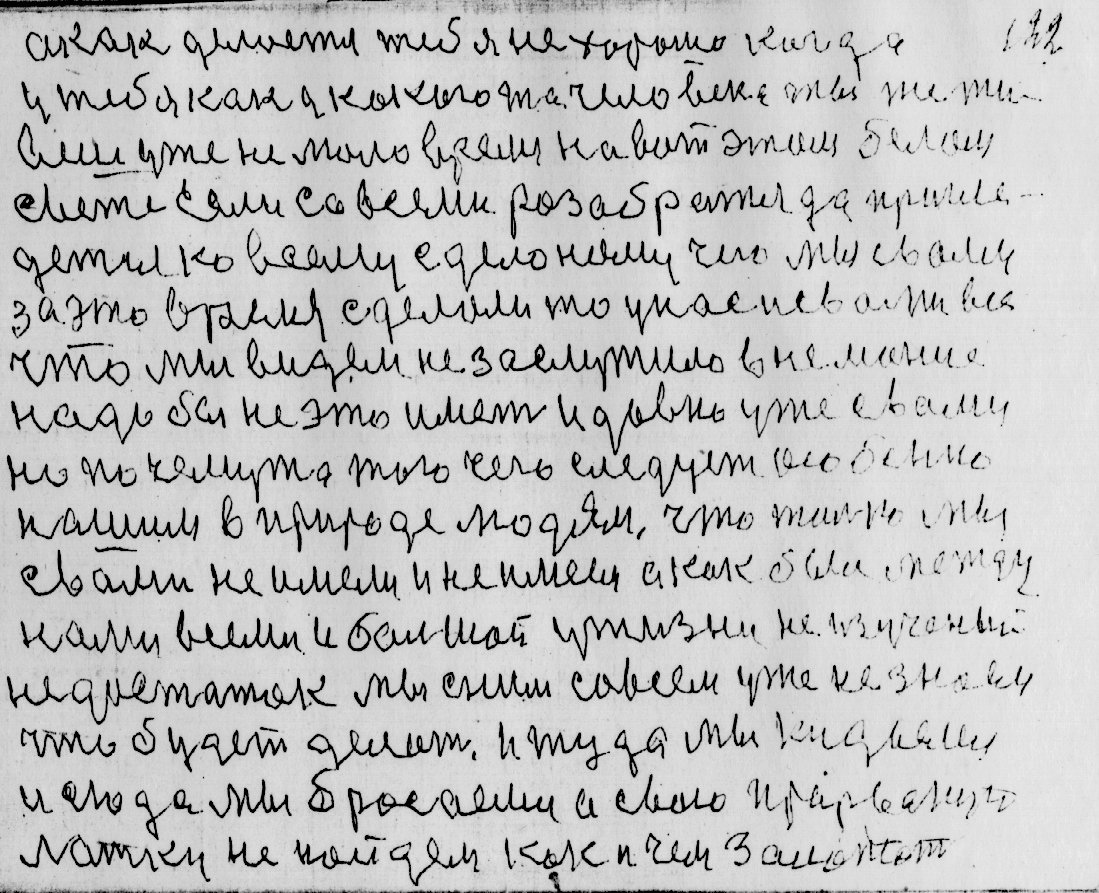 122
акак делоетя тебя не хорошо когда
у тебя как у кокого та человека ты жети
веш уже не моло время на вот этом белом
свете Если со всеми розабратя да пригле-
детя ко всему сделоному чего мы свами
за это время сделоли то у нас и свами вся
что мы видем не заслужило внемание
надо бы не это имет и довно уже свами
но почемута того чего следует особенно
нашим в природе людям, что толко мы
свами не имели и не имеем а как был между
нами всеми и болшой у жизни не изученый
недостаток мы сним совсем уже не знаем
что будет делат. и туда мы кидаемя
и сюда мы бросаемя а свою прорваную
латку не пойдем как и чем